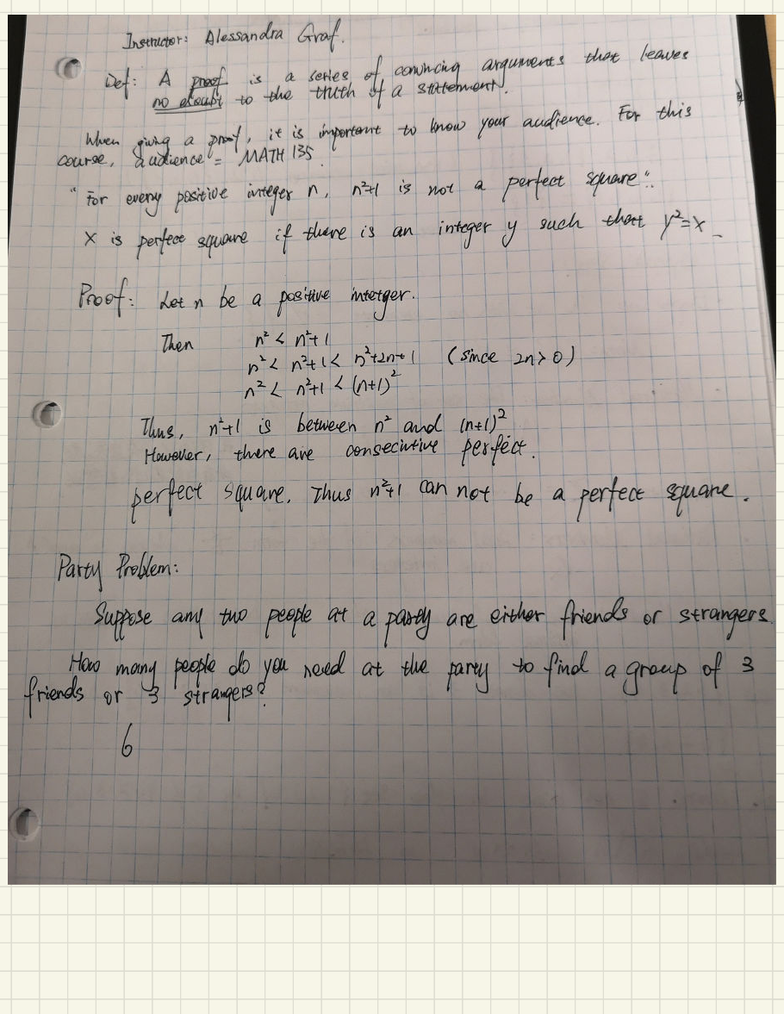 Instructor: Alessandra Graf.
Def: A proof is a series of convincing arguments that leaves
no doubt to the truth of a statement.
When giving a proof, it is important to know your audience. For this
course, audience = MATH 135.
"For every positive integer n, n²+1 is not a perfect square".
X is perfect square if there is an integer y such that y²=x
Proof: Let n be a positive intetger.
Then n² < n²+1
n² < n²+1 < n²+2n+1 (since 2n>0)
n² < n²+1 < (n+1)²
Thus, n²+1 is between n² and (n+1)²
However, there are consecutive perfect.
perfect square. Thus n²+1 can not be a perfect square.
Party Problem:
Suppose any two people at a party are either friends or strangers.
How many people do you need at the party to find a group of 3
friends or 3 strangers?
6